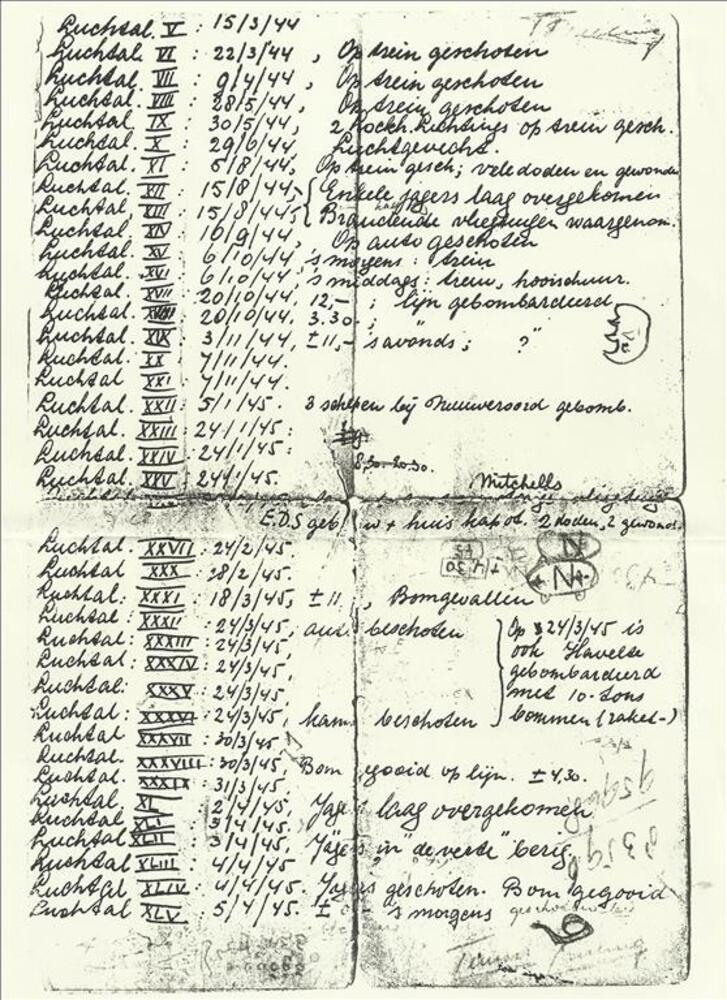 Luchtal. V : 15/3/44
Luchtal. VI : 22/3/44, Op trein geschoten
Luchtal. VII : 9/4/44, Op trein geschoten
Luchtal. VIII : 28/5/44, Op trein geschoten
Luchtal. IX : 30/5/44, 2 Lockh. Lichtnings op trein gesch.
Luchtal. X : 29/6/44, Luchtgevecht.
Luchtal. XI : 5/8/44, Op trein gesch; vele doden en gewonde
Luchtal. XII : 15/8/44, { Enkele jagers laag overgekomen
Luchtal. XIII : 15/8/44, { Brandende vliegtuigen waargenom.
Luchtal. XIV : 16/9/44, Op auto geschoten
Luchtal. XV : 6/10/44, 's morgens : trein
Luchtal. XVI : 6/10/44, 's middags : trein, hooischuur.
Luchtal. XVII : 20/10/44, 12,- ; lijn gebombardeerd
Luchtal. XVIII : 20/10/44, 3.30. ; " "
Luchtal. XIX : 3/11/44, ± 11,- 's avonds ; ?"
Luchtal. XX : 7/11/44.
Luchtal. XXI : 7/11/44.
Luchtal. XXII : 5/1/45. 3 schepen bij Nieuweroord gebomb.
Luchtal. XXIII : 24/1/45:
Luchtal. XXIV : 24/1/45:
Luchtal. XXV : 24/1/45. 8,30-20.30.
Mitchells
E.D.S geb w + huis kapot. 2 doden, 2 gewonde.
Luchtal. XXVII : 24/2/45.
Luchtal XXX : 28/2/45.
Luchtal: XXXI : 18/3/45, ± 11, Bomgevallen
Luchtal: XXXII : 24/3/45, auto beschoten } Op 24/3/45 is
Luchtal: XXXIII : 24/3/45, ook Havelte
Luchtal: XXXIV : 24/3/45, gebombardeerd
Luchtal: XXXV : 24/3/45, met 10-tons
Luchtal: XXXVI : 24/3/45, beschoten bommen (raket-)
Luchtal. XXXVII : 30/3/45,
Luchtal. XXXVIII : 30/3/45, Bom gegooid op lijn. ± 4,30.
Luchtal. XXXIX : 31/3/45,
Luchtal. XL : 2/4/45, Jagers laag overgekomen
Luchtal. XLI : 3/4/45,
Luchtal XLII : 3/4/45, Jagers in "de verte" bezig.
Luchtal XLIII : 4/4/45,
Luchtal XLIV : 4/4/45. Jagers geschoten. Bom gegooid
Luchtal XLV : 5/4/45. ± 's morgens